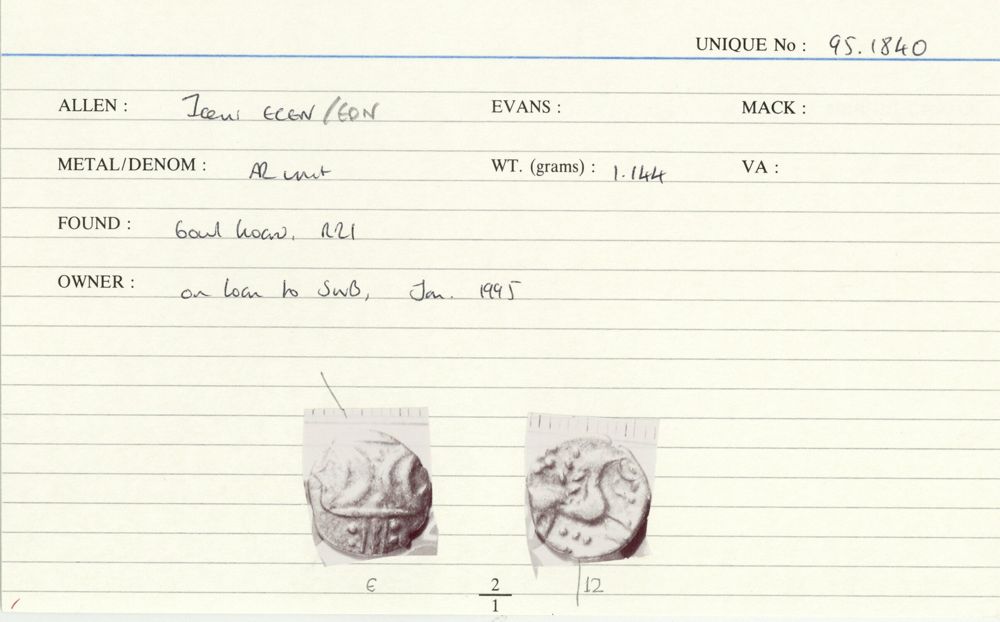 UNIQUE No : 95.1840
ALLEN : Iceni ECEN/EDN EVANS : MACK :
METAL/DENOM : AR unit WT. (grams) : 1.144 VA :
FOUND : bowl hoard, R21
OWNER : on loan to SWB, Jan. 1995
E 2/1 12